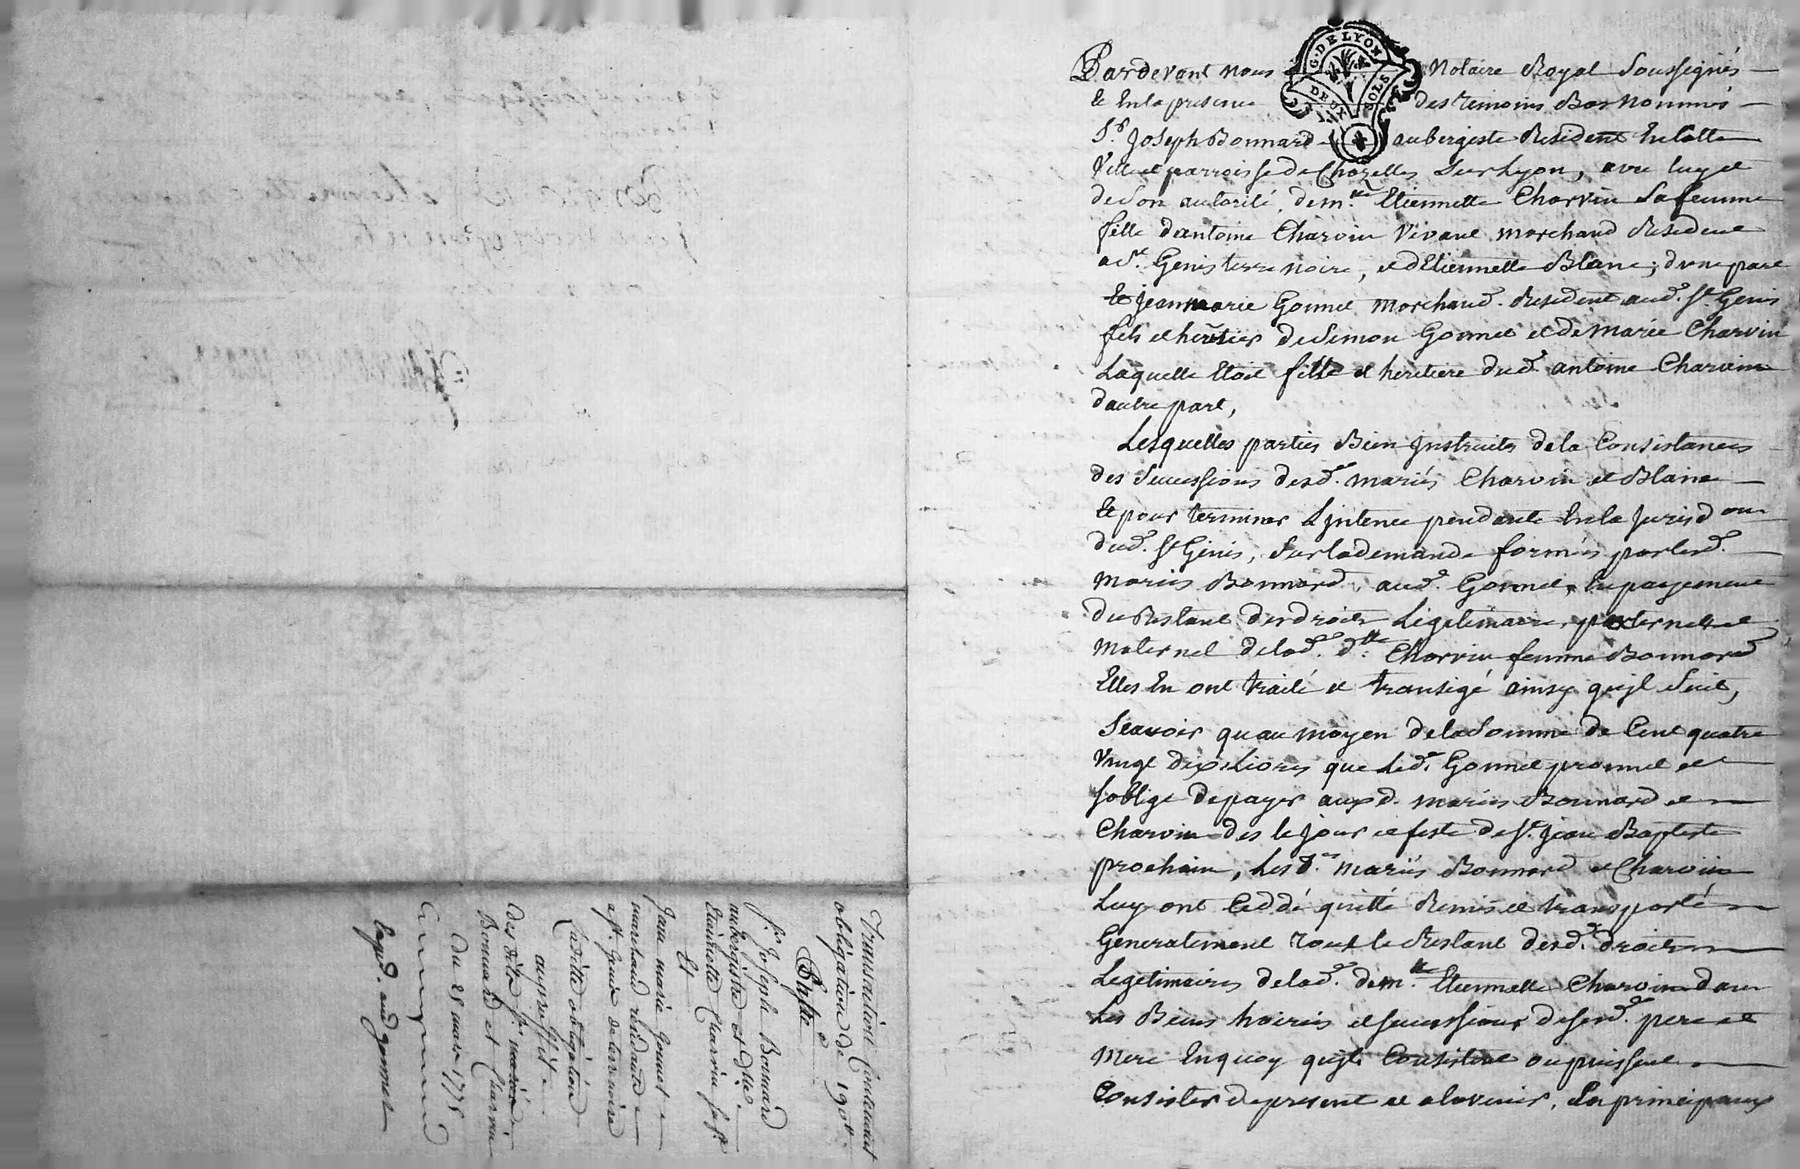 Pardevant nous Notaire Royal Soussignés
G. DE LYON
DEUX SOLS
et En la presence des temoins Bas Nommés
Sr. Joseph Bonnard aubergiste Resident En cette
Ville et parroisse de Chazelles Sur Lyon, avec luy et
de Son autorité, dem.lle Etiennette Charvin Sa femme
fille d'antoine Charvin Vivant marchand Resident
a St. Genis terre noire, et d'Etiennette Blanc; d'une part
Et jean marie Gonnet Marchand Resident aud. St. Genis
fils et heritier de Simon Gonnet et de Marie Charvin
Laquelle Etoit fille et heritiere dud. antoine Charvin
d'autre part,
Lesquelles parties Bien Instruits de la Consistance
des Successions desd. mariés Charvin et Blanc
Et pour terminer L'Instance pendante En la Jurisd.on
dud. St. Genis, Sur la demande formée par lesd.
mariés Bonnard, aud. Gonnet, En payement
du Restant des droits Legitimaires, paternel et
maternel de lad. d.lle Charvin femme Bonnard
Elles En ont traité et transigé ainsy qu'jl Suit,
Scavoir qu'au moyen de la Somme de Cent quatre
Vingt dix Livres que led. Gonnet promet et
S'oblige de payer auxd. mariés Bonnard et
Charvin des le jour et feste de St. jean Baptiste
prochain, Lesd. mariés Bonnard et Charvin
Luy ont Ceddé quitté Remis et transporté
Generalement tout le Restant desd. droits
Legitimaires de lad. dem.lle Etiennette Charvin dans
Les Biens hoiries et successions de Sesd. pere et
Mere En quoy qu'jls Consistent ou puissent
Consister de present et a l'avenir, En principaux
Transaction Contenant
obligation de 190#
Passée
Sr. Joseph Bonnard
aubergiste et dlle.
Etiennette Charvin sa fe.
Et
Jean marie Gonnet
marchand residant
a St. Genis de terrenoire
Ladite obligation
au proffit
des dits Sr. mariés
Bonnard et Charvin
du 28 mars 1778
aud. gonnet